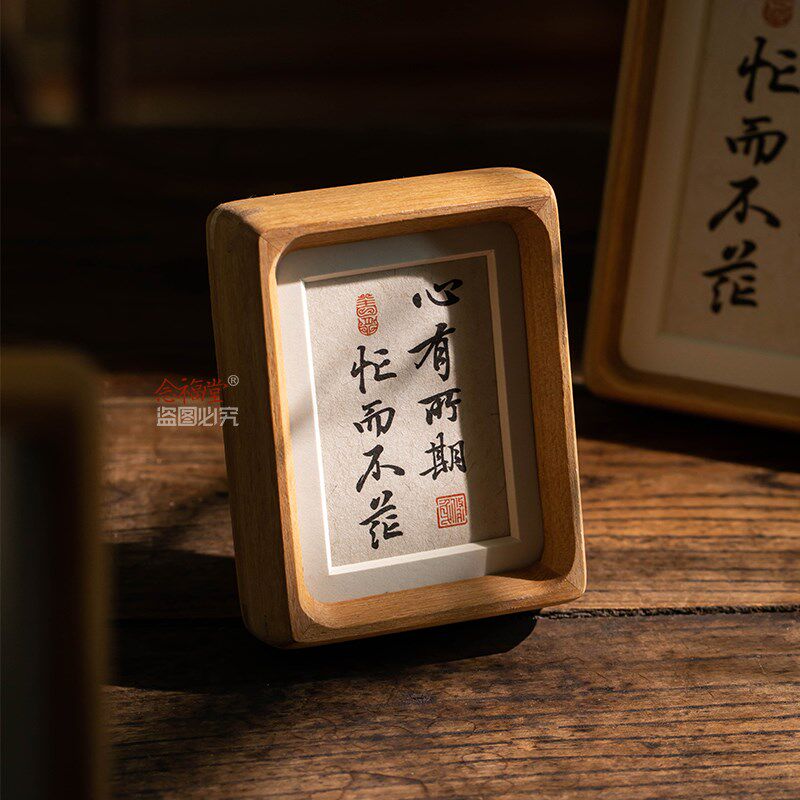 心有所期
忙而不茫
忙而不茫
念福堂®
盗图必究